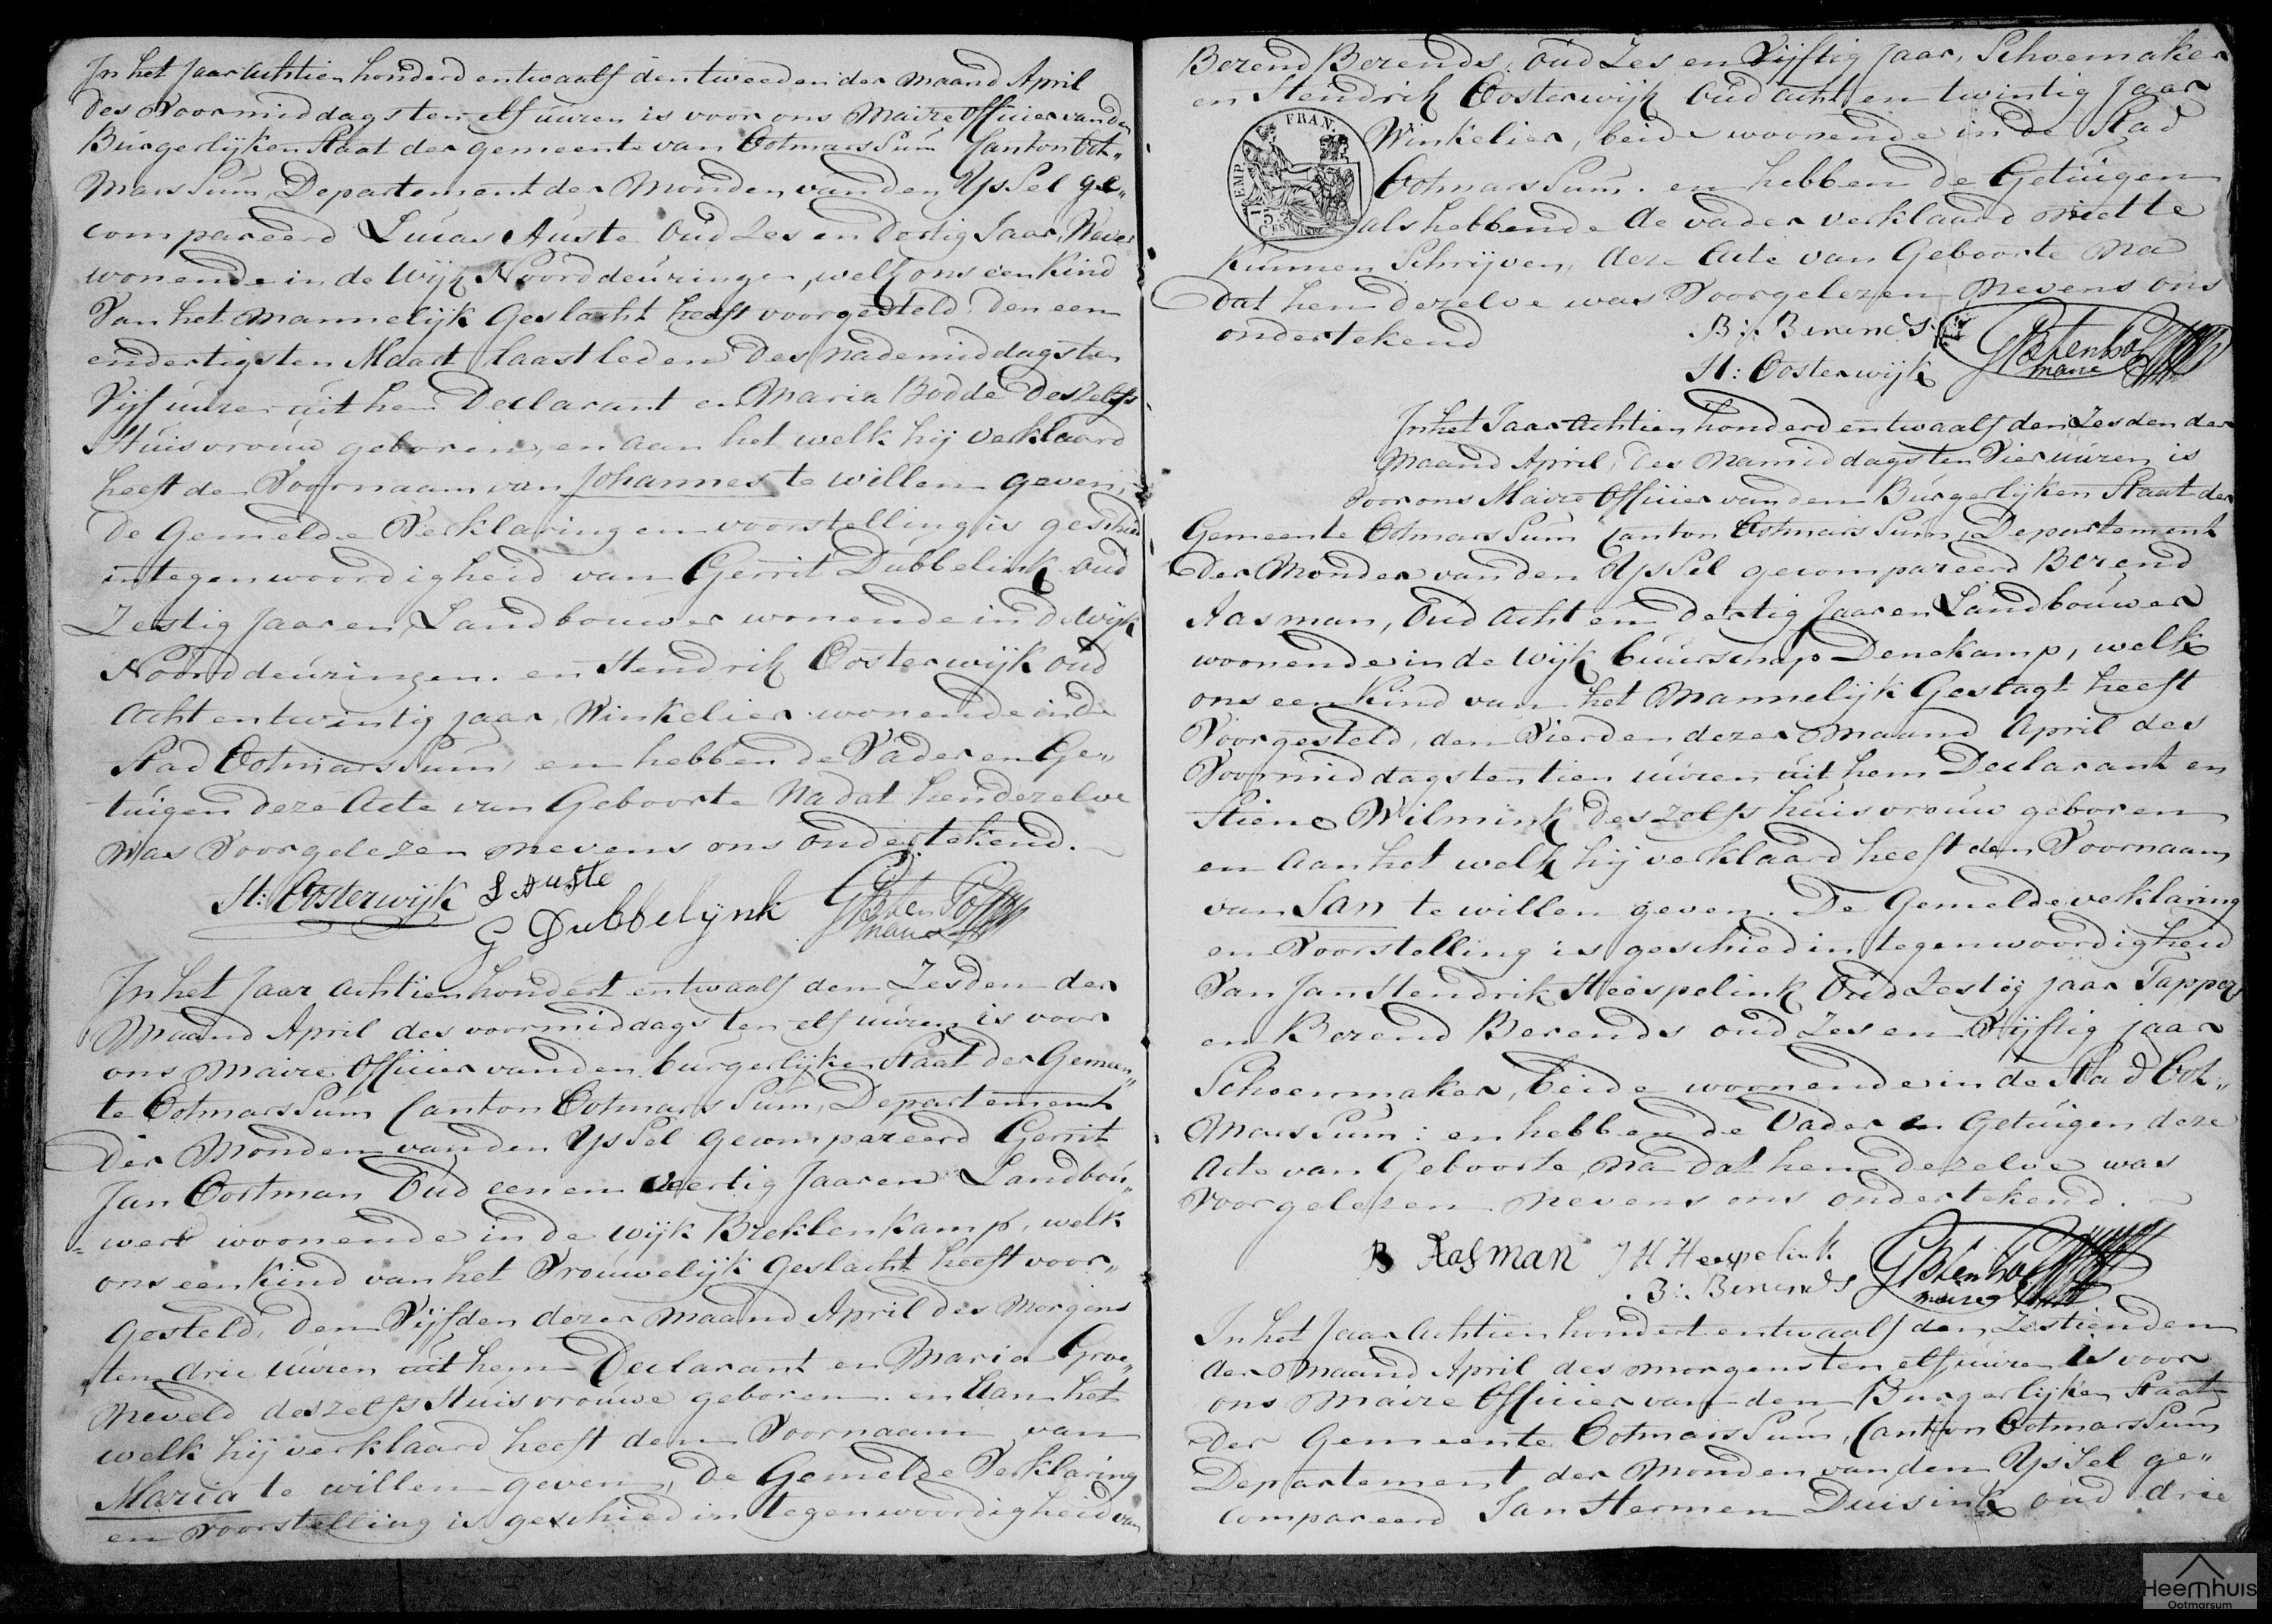 In het Jaar achtien honderd en twaalf den tweeden der maand April
des Voormiddags ten elf uuren is voor ons Maire officier van den
Burgerlijken Staat der gemeente van Ootmarssum Canton Oot„
marssum, Departement der Monden van den Yssel ge„
compareerd Lucas Auste Oud Zes en Dertig Jaar, Wever
wonende in de Wijk Noorddeuringen, welk ons een Kind
Van het mannelijk Geslacht heeft voorgesteld, den een
en dertigsten Maart laastleden des nademiddags ten
Vijf uuren uit hem Declarant en Maria Bodde deszelfs
Huisvrouw geboren, en aan het welk hij verklaard
heeft den Voornaam van Johannes te willen geven,
de Gemelde Verklaring en voorstelling is geschied
in tegenwoordigheid van Gerrit Dubbelink oud
Zestig Jaar en Landbouwer wonende in de Wijk
Noorddeuringen. en Hendrik Oosterwijk oud
Acht en twintig jaar, Winkelier wonende in de
Stad Ootmarssum en hebben de Vader en Ge„
tuigen deze Acte van Geboorte Nadat hen dezelve
was Voorgelezen nevens ons ondertekend.
H: Oosterwijk L Auste
G Dubbelijnk
maire
In het Jaar achtien hondert en twaalf den Zesden der
Maand April des voormiddags ten elf uuren is voor
ons Maire Officier van den burgerlijken Staat der Gemeen„
te Ootmarssum Canton Ootmarssum, Departement
Der Monden van den Yssel gecompareerd Gerrit
Jan Oortman Oud een en veertig Jaar en Landbou„
„wer woonende in de wijk Breklenkamp, welk
ons een Kind van het Vrouwelijk Geslacht heeft voor„
gesteld, den Vijfden dezer maand April des Morgens
ten drie uuren uit hem Declarant en Maria Groe„
neveld deszelfs Huisvrouwe geboren. en Aan het
welk hij verklaard heeft den Voornaam van
Maria te willen geven, De Gemelde Verklaring
en Voorstelling is geschied in tegenwoordigheid van
Berend Berends, Oud Zes en Vijftig Jaar, Schoemaker
en Hendrik Oosterwijk Oud acht en twintig Jaar
Winkelier, beide woonende in de Stad
Ootmarssum. en hebben de Getuigen
als hebbende de vader verklaard niet te
Kunnen Schrijven, deze Acte van Geboorte na
Dat hen dezelve was Voorgelezen Nevens ons
ondertekend
EMP. FRAN.
75
CENTIMES
B:. Berends
H: Oosterwijk
maire
In het Jaar Achtien honderd en twaalf den Zesden der
Maand April, des namiddags ten Vier uuren is
Voor ons Maire Officier van den Burgerlijken Staat der
Gemeente Ootmarssum Canton Ootmarssum, Departement
Der Monden van den Yssel gecompareerd Berend
Aasman, Oud Acht en dertig Jaar en Landbouwer
woonende in de Wijk buurschap Denekamp, welk
ons een Kind van het Mannelijk Geslagt heeft
Voorgesteld, den Vierden dezer Maand April des
Voormiddags ten tien uuren uit hem Declarant en
Stiene Wilmink deszelfs huisvrouw geboren
en Aan het welk hij verklaard heeft den Voornaam
van Jan te willen geven. De Gemelde verklaring
en Voorstelling is geschied in tegenwoordigheid
Van Jan Hendrik Heespelink Oud Zestig jaar Tapper
en Berend Berends oud Zes en Vijftig jaar
Schoenmaker, beide woonende in de Stad Oot„
marssum: en hebben de Vader en Getuigen deze
Acte van Geboorte, na dat hen dezelve was
Voorgelezen nevens ons ondertekend.
B Aasman J H Heespelink
B:. Berends
maire
In het Jaar Achtien hondert en twaalf den Zestienden
der Maand April des morgens ten elf uuren is voor
ons Maire Officier van den Burgerlijken Staat
Der Gemeente Ootmarssum, Canton Ootmarssum
Departement der Monden van den Yssel ge„
compareerd Jan Hermen Duisink oud drie
Heemhuis
Ootmarsum